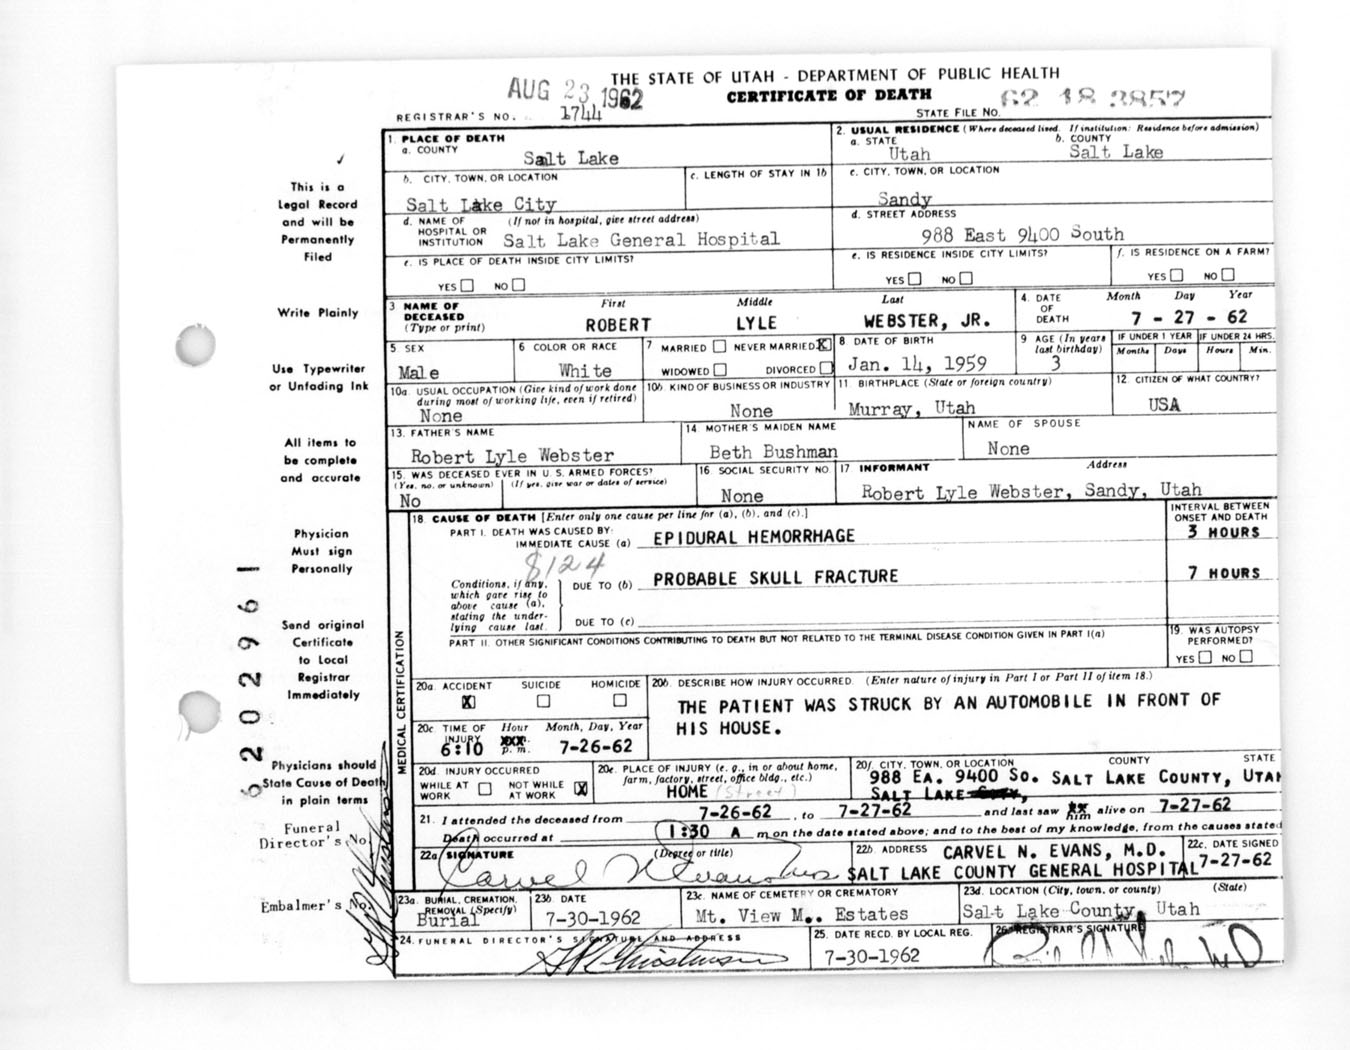 THE STATE OF UTAH - DEPARTMENT OF PUBLIC HEALTH
AUG 23 1962
CERTIFICATE OF DEATH
62 18 3857
REGISTRAR'S NO. 1744
STATE FILE NO.
1. PLACE OF DEATH
a. COUNTY
Salt Lake
2. USUAL RESIDENCE (Where deceased lived. If institution: Residence before admission)
a. STATE
Utah
b. COUNTY
Salt Lake
b. CITY, TOWN, OR LOCATION
Salt Lake City
c. LENGTH OF STAY IN 1b
c. CITY, TOWN, OR LOCATION
Sandy
d. NAME OF HOSPITAL OR INSTITUTION
(If not in hospital, give street address)
Salt Lake General Hospital
d. STREET ADDRESS
988 East 9400 South
e. IS PLACE OF DEATH INSIDE CITY LIMITS?
YES NO
e. IS RESIDENCE INSIDE CITY LIMITS?
YES NO
f. IS RESIDENCE ON A FARM?
YES NO
3 NAME OF DECEASED
(Type or print)
First Middle Last
ROBERT LYLE WEBSTER, JR.
4. DATE OF DEATH
Month Day Year
7 - 27 - 62
5. SEX
Male
6 COLOR OR RACE
White
7 MARRIED NEVER MARRIED X
WIDOWED DIVORCED
8 DATE OF BIRTH
Jan. 14, 1959
9 AGE (In years last birthday)
3
IF UNDER 1 YEAR
Months Days
IF UNDER 24 HRS.
Hours Min.
10a. USUAL OCCUPATION (Give kind of work done during most of working life, even if retired)
None
10b. KIND OF BUSINESS OR INDUSTRY
None
11. BIRTHPLACE (State or foreign country)
Murray, Utah
12. CITIZEN OF WHAT COUNTRY?
USA
13. FATHER'S NAME
Robert Lyle Webster
14. MOTHER'S MAIDEN NAME
Beth Bushman
NAME OF SPOUSE
None
15. WAS DECEASED EVER IN U. S. ARMED FORCES?
(Yes, no, or unknown) (If yes, give war or dates of service)
No
16 SOCIAL SECURITY NO.
None
17 INFORMANT Address
Robert Lyle Webster, Sandy, Utah
MEDICAL CERTIFICATION
18. CAUSE OF DEATH [Enter only one cause per line for (a), (b), and (c).]
INTERVAL BETWEEN ONSET AND DEATH
PART I. DEATH WAS CAUSED BY:
IMMEDIATE CAUSE (a) EPIDURAL HEMORRHAGE
3 HOURS
8124
Conditions, if any, which gave rise to above cause (a), stating the underlying cause last.
DUE TO (b) PROBABLE SKULL FRACTURE
7 HOURS
DUE TO (c)
PART II. OTHER SIGNIFICANT CONDITIONS CONTRIBUTING TO DEATH BUT NOT RELATED TO THE TERMINAL DISEASE CONDITION GIVEN IN PART I(a)
19. WAS AUTOPSY PERFORMED?
YES NO
20a. ACCIDENT SUICIDE HOMICIDE
X
20b. DESCRIBE HOW INJURY OCCURRED. (Enter nature of injury in Part I or Part II of item 18.)
THE PATIENT WAS STRUCK BY AN AUTOMOBILE IN FRONT OF
HIS HOUSE.
20c. TIME OF INJURY
Hour Month, Day, Year
6:10 p. m. 7-26-62
20d. INJURY OCCURRED
WHILE AT WORK NOT WHILE AT WORK X
20e. PLACE OF INJURY (e. g., in or about home, farm, factory, street, office bldg., etc.)
HOME (Street)
20f. CITY, TOWN, OR LOCATION COUNTY STATE
988 EA. 9400 SO. SALT LAKE COUNTY, UTAH
SALT LAKE CITY,
21. I attended the deceased from 7-26-62, to 7-27-62 and last saw him alive on 7-27-62
Death occurred at 1:30 A m on the date stated above; and to the best of my knowledge, from the causes stated
22a. SIGNATURE (Degree or title)
Carvel N Evans
22b. ADDRESS
CARVEL N. EVANS, M.D.
SALT LAKE COUNTY GENERAL HOSPITAL
22c. DATE SIGNED
7-27-62
23a. BURIAL, CREMATION, REMOVAL (Specify)
Burial
23b. DATE
7-30-1962
23c. NAME OF CEMETERY OR CREMATORY
Mt. View M.. Estates
23d. LOCATION (City, town, or county) (State)
Salt Lake County, Utah
24. FUNERAL DIRECTOR'S SIGNATURE AND ADDRESS
25. DATE RECD. BY LOCAL REG.
7-30-1962
26. REGISTRAR'S SIGNATURE
This is a
Legal Record
and will be
Permanently
Filed
Write Plainly
Use Typewriter
or Unfading Ink
All items to
be complete
and accurate
Physician
Must sign
Personally
Send original
Certificate
to Local
Registrar
Immediately
Physicians should
State Cause of Death
in plain terms
Funeral
Director's No.
Embalmer's No.
6202961